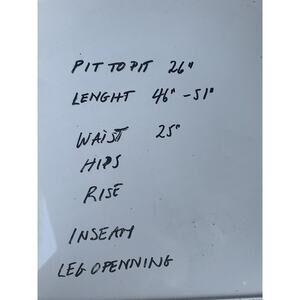 PIT TO PIT 26"
LENGHT 46" - 51"
WAIST 25"
HIPS
RISE
INSEAM
LEG OPENNING